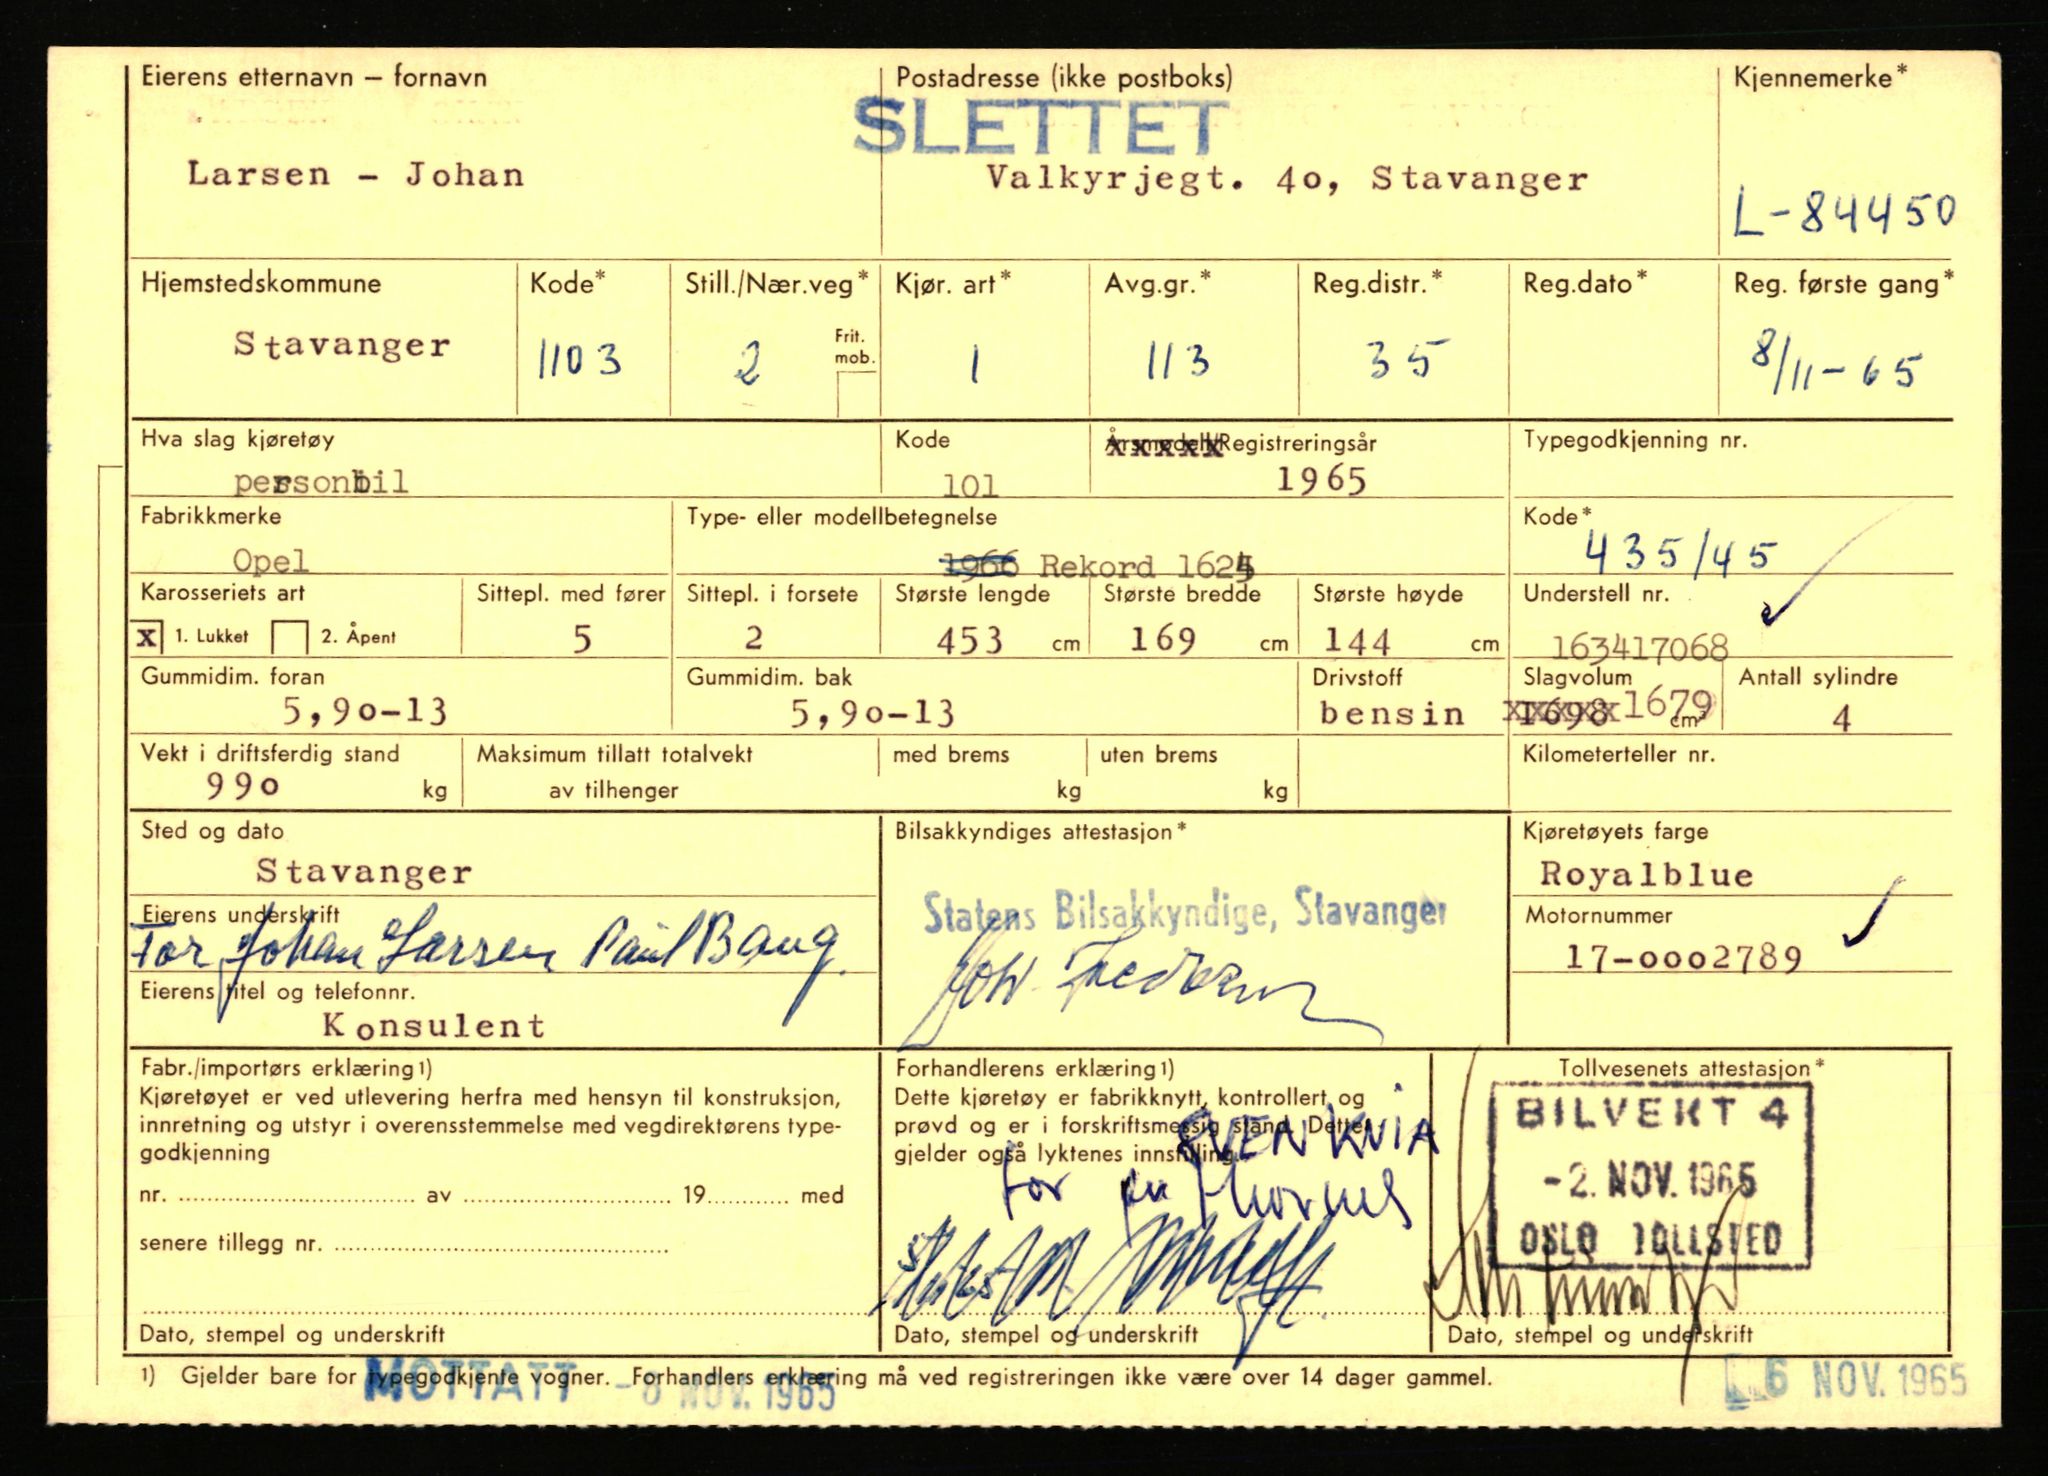 Eierens etternavn – fornavn
Larsen – Johan
Postadresse (ikke postboks)
SLETTET
Valkyrjegt. 40, Stavanger
Kjennemerke*
L-84450
Hjemstedskommune
Stavanger
Kode*
1103
Still./Nær.veg*
2
Frit. mob.
Kjør. art*
1
Avg.gr.*
113
Reg.distr.*
35
Reg.dato*
Reg. første gang*
8/11-65
Hva slag kjøretøy
personbil
Kode
101
Årsmodell/Registreringsår
1965
Typegodkjenning nr.
Fabrikkmerke
Opel
Type- eller modellbetegnelse
1966 Rekord 1624
Kode*
435/45
Karosseriets art
x 1. Lukket 2. Åpent
Sittepl. med fører
5
Sittepl. i forsete
2
Største lengde
453 cm
Største bredde
169 cm
Største høyde
144 cm
Understell nr.
163417068
Gummidim. foran
5,90-13
Gummidim. bak
5,90-13
Drivstoff
bensin
Slagvolum
1698 1679 cm³
Antall sylindre
4
Vekt i driftsferdig stand
990 kg
Maksimum tillatt totalvekt
av tilhenger
med brems
kg
uten brems
kg
Kilometerteller nr.
Sted og dato
Stavanger
Eierens underskrift
For Johan Larsen Paul Baug.
Eierens titel og telefonnr.
Konsulent
Bilsakkyndiges attestasjon*
Statens Bilsakkyndige, Stavanger
Kjøretøyets farge
Royalblue
Motornummer
17-0002789
Fabr./importørs erklæring1)
Kjøretøyet er ved utlevering herfra med hensyn til konstruksjon,
innretning og utstyr i overensstemmelse med vegdirektørens type-
godkjenning
nr. ........ av ........ 19........ med
senere tillegg nr. ........
Dato, stempel og underskrift
Forhandlerens erklæring1)
Dette kjøretøy er fabrikknytt, kontrollert og
prøvd og er i forskriftsmessig stand. Dette
gjelder også lyktenes innstilling.
SVEN KVIA
for
Dato, stempel og underskrift
Tollvesenets attestasjon*
BILVEKT 4
-2. NOV. 1965
OSLO TOLLSTED
Dato, stempel og underskrift
1) Gjelder bare for typegodkjente vogner. Forhandlers erklæring må ved registreringen ikke være over 14 dager gammel.
MOTTATT -8 NOV. 1965
6 NOV. 1965